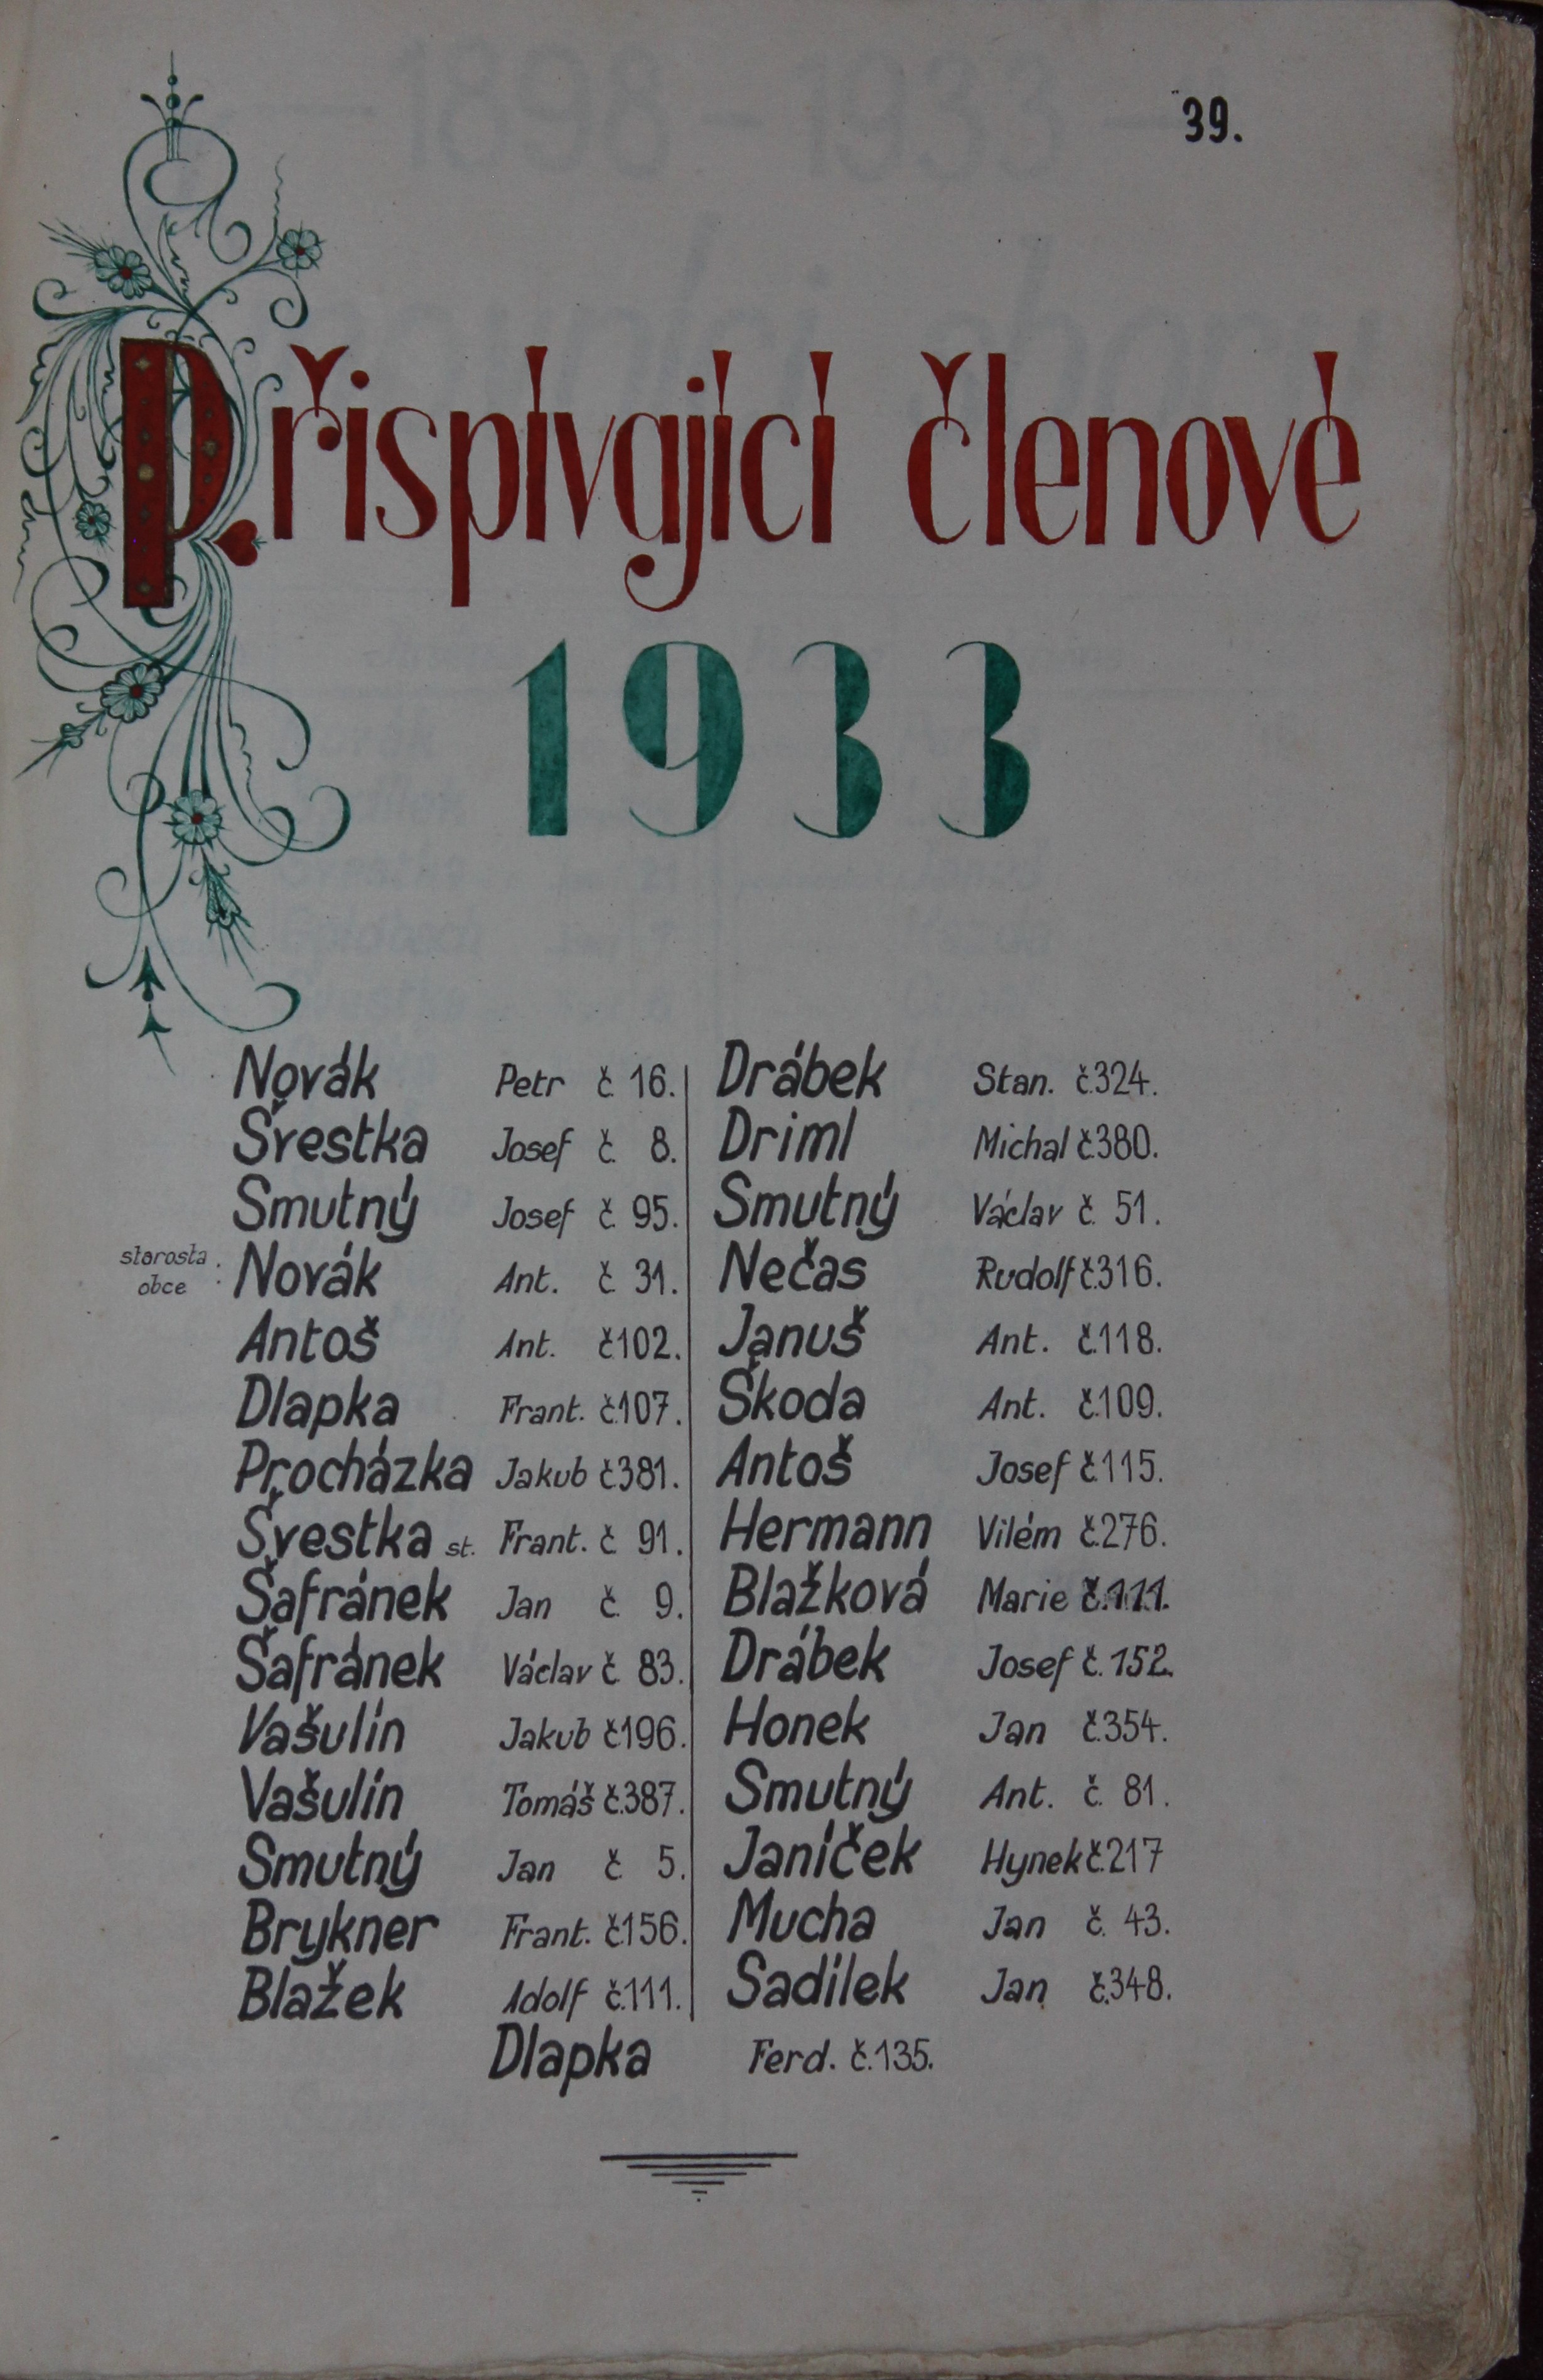 39.
Přispívající členové
1933
Novák Petr č. 16.
Švestka Josef č. 8.
Smutný Josef č. 95.
starosta obce : Novák Ant. č. 31.
Antoš Ant. č.102.
Dlapka Frant. č.107.
Procházka Jakub č.381.
Švestka st. Frant. č. 91.
Šafránek Jan č. 9.
Šafránek Václav č. 83.
Vašulín Jakub č.196.
Vašulín Tomáš č.387.
Smutný Jan č. 5.
Brykner Frant. č.156.
Blažek Adolf č.111.
Drábek Stan. č.324.
Driml Michal č.380.
Smutný Václav č. 51.
Nečas Rudolf č.316.
Januš Ant. č.118.
Škoda Ant. č.109.
Antoš Josef č.115.
Hermann Vilém č.276.
Blažková Marie č.111.
Drábek Josef č.152.
Honek Jan č.354.
Smutný Ant. č. 81.
Janíček Hynek č.217
Mucha Jan č. 43.
Sadílek Jan č.348.
Dlapka Ferd. č.135.